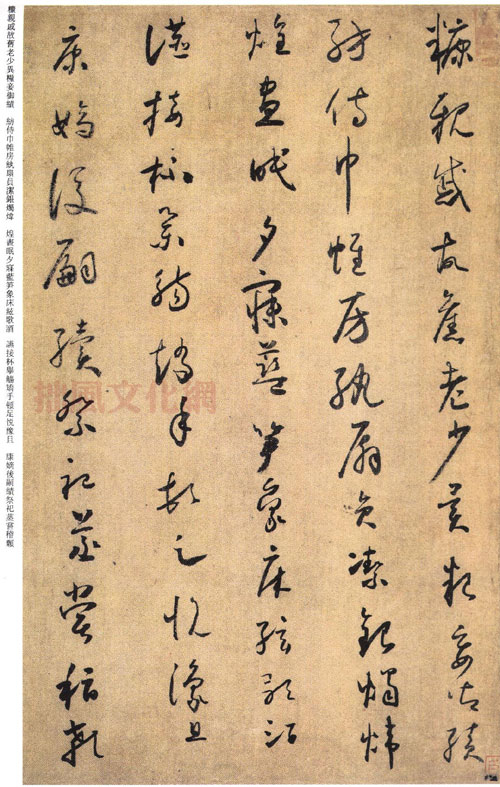 糠親戚故舊老少異粮妾御績
紡侍巾帷房紈扇員潔銀燭煒
煌晝眠夕寐藍笋象床絃歌酒
讌接杯舉觴矯手頓足悅豫且
康嫡後嗣續祭祀蒸嘗稽顙
糠親戚故舊老少異糧妾御績　紡侍巾帷房紈扇員潔銀燭煒　煌晝眠夕寐藍笋象床絃歌酒　讌接杯舉觴矯手頓足悅豫且　康嫡後嗣續祭祀蒸嘗稽顙
拙風文化網